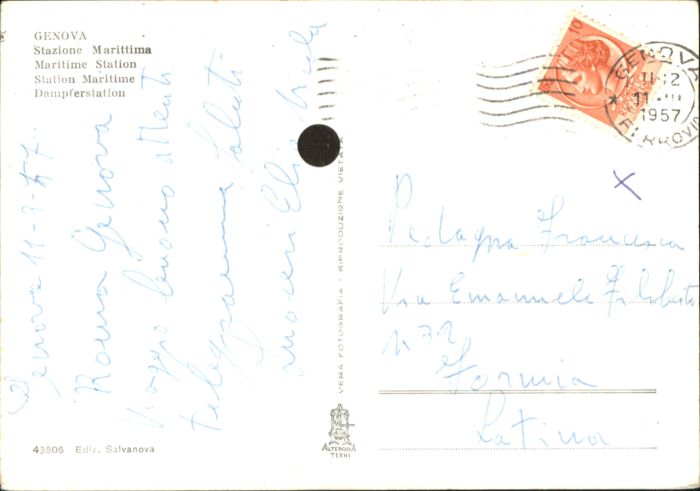 GENOVA
Stazione Marittima
Maritime Station
Station Maritime
Dampferstation
Genova 11-3-57.
Roma Genova
viaggio buono attenti
telegramma Saluti
suoceri Elia
43806 Ediz. Salvanova
VERA FOTOGRAFIA - RIPRODUZIONE VIETATA
ALTEROCCA
TERNI
GENOVA
11-12
11 III
1957
FERROVIA
Francesca
Via Emanuele Filiberto
n 72
Formia
Latina